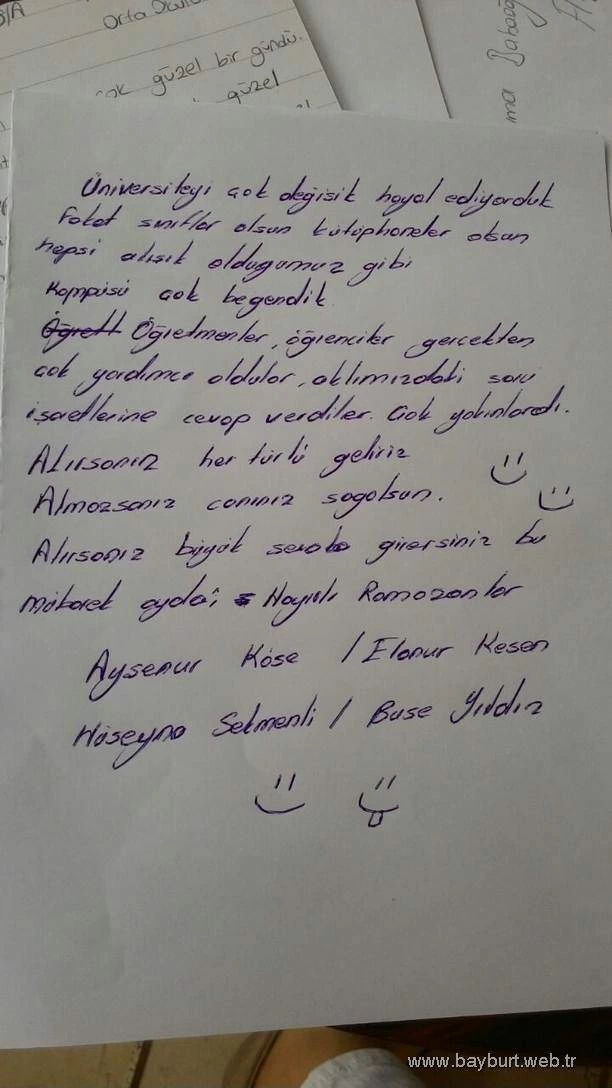 Orta Okulu
çok güzel bir gündü.
güzel
ma Babaoğ
Üniversiteyi çok değişik hayal ediyorduk
Fakat sınıflar olsun kütüphaneler olsun
hepsi alışık olduğumuz gibi
Kampüsü çok beğendik.
Öğrett Öğretmenler, öğrenciler gerçekten
çok yardımcı oldular, aklımızdaki soru
işaretlerine cevap verdiler. Çok yakınlardı.
Alırsanız her türlü geliriz
Almazsanız canınız sağolsun.
Alırsanız büyük sevaba girersiniz bu
mübarek ayda; Hayırlı Ramazanlar
Ayşenur Köse / Elanur Kesen
Selmenli / Buse Yıldız
www.bayburt.web.tr